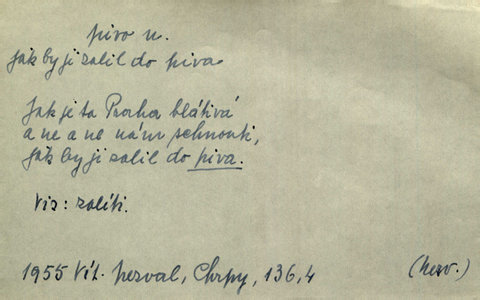 pivo n.
jak by ji zalil do piva
Jak je ta Praha blátivá
a ne a ne nám schnouti,
jak by ji zalil do piva.
Viz: zalíti.
1955 Vít. Nezval, Chrpy, 136,4 (herv.)